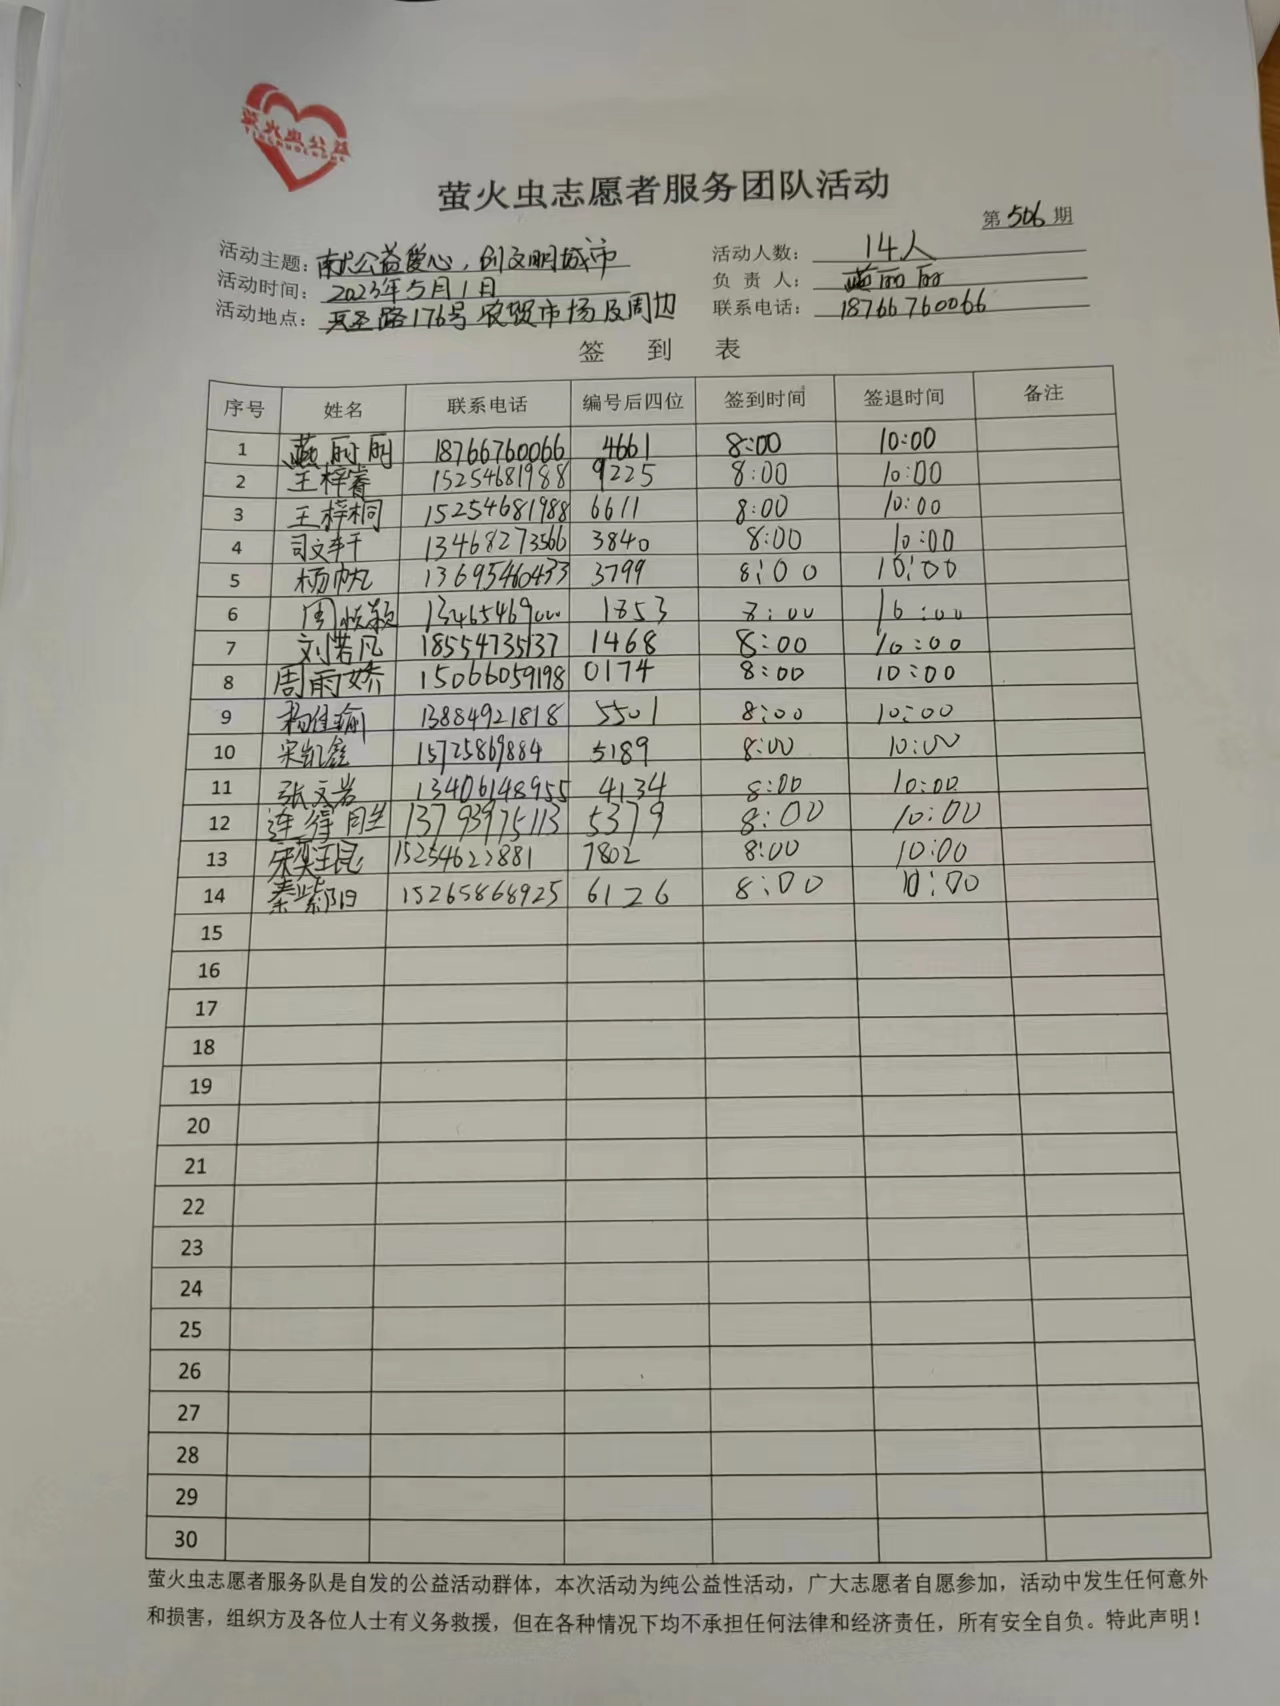 萤火虫公益
萤火虫志愿者服务团队活动
第506期
活动主题：献公益爱心，创文明城市 活动人数：14人
活动时间：2023年5月1日 负责人：燕丽丽
活动地点：路176号农贸市场及周边 联系电话：18766760066
签到表
序号 姓名 联系电话 编号后四位 签到时间 签退时间 备注
1 燕丽丽 18766760066 4661 8:00 10:00
2 王梓睿 15254681988 9225 8:00 10:00
3 王梓桐 15254681988 6611 8:00 10:00
4 司文 13468273566 3840 8:00 10:00
5 杨帅 13695460433 3799 8:00 10:00
6 周 颖 13465469000 1853 8:00 10:00
7 刘若凡 18554735137 1468 8:00 10:00
8 周雨娇 15066059198 0174 8:00 10:00
9 杨佳瑜 13884921818 5501 8:00 10:00
10 宋凯鑫 15725869884 5189 8:00 10:00
11 张文岩 13406148955 4134 8:00 10:00
12 连 13793975113 5379 8:00 10:00
13 15254622881 7802 8:00 10:00
14 秦紫阳 15265868925 6126 8:00 10:00
15
16
17
18
19
20
21
22
23
24
25
26
27
28
29
30
萤火虫志愿者服务队是自发的公益活动群体，本次活动为纯公益性活动，广大志愿者自愿参加，活动中发生任何意外
和损害，组织方及各位人士有义务救援，但在各种情况下均不承担任何法律和经济责任，所有安全自负。特此声明！